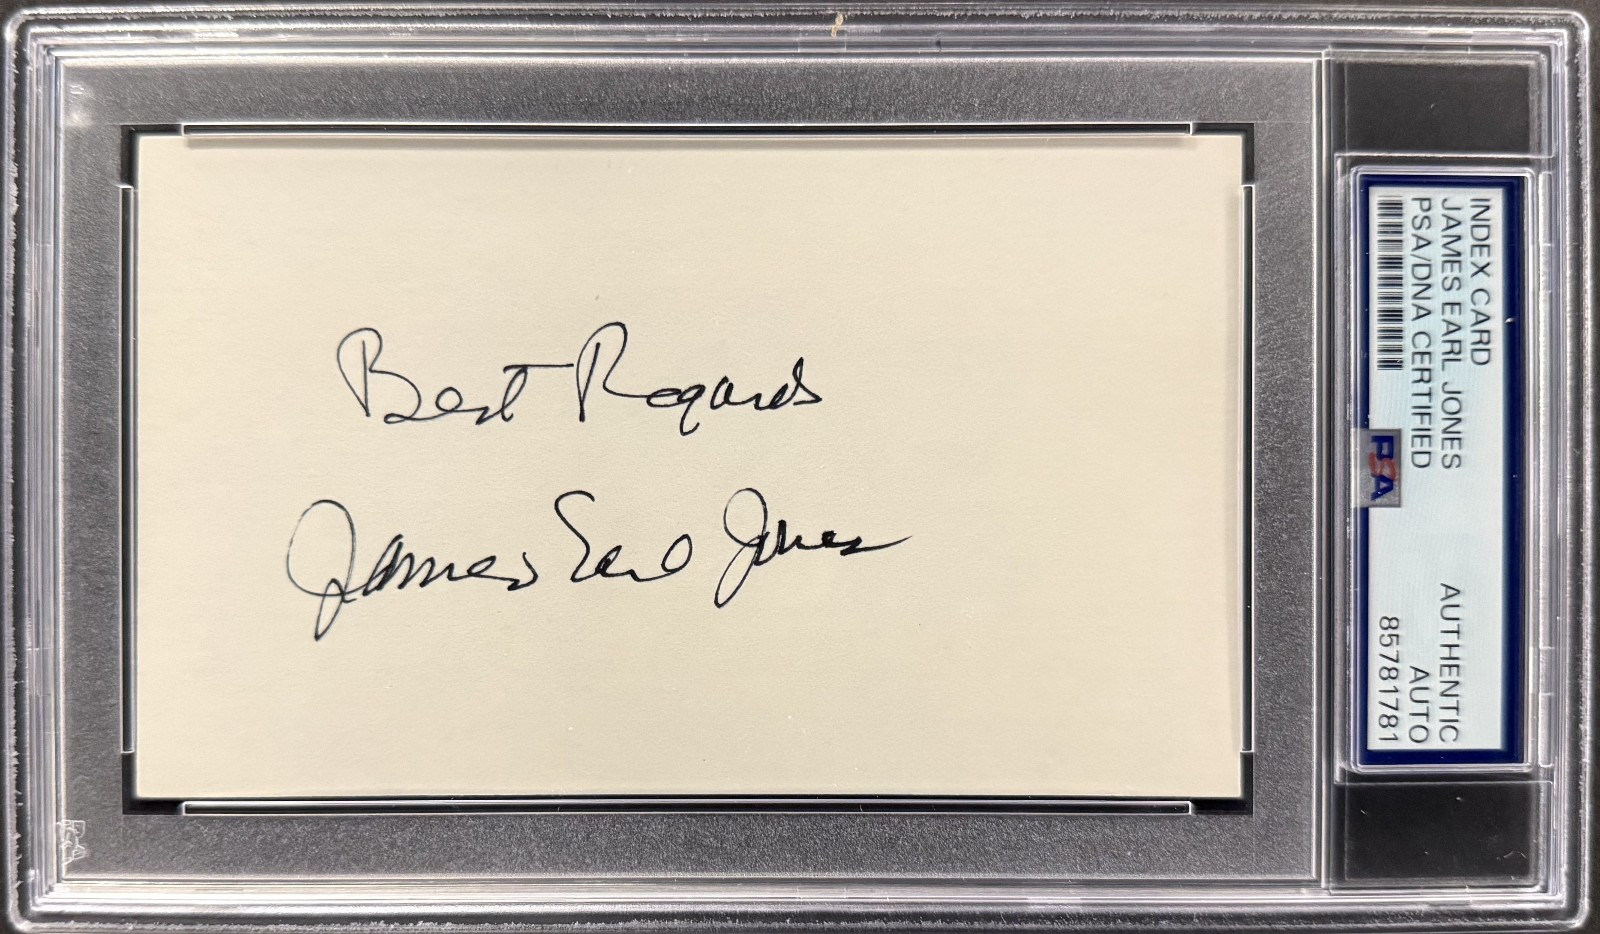 Best Regards
James Earl Jones
INDEX CARD
JAMES EARL JONES
PSA/DNA CERTIFIED
AUTHENTIC
AUTO
85781781
PSA
PSA